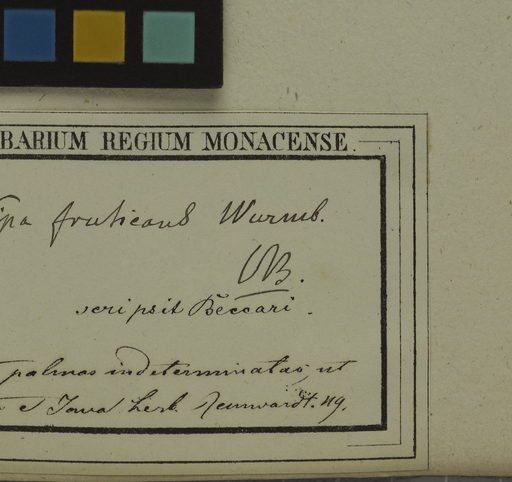 BARIUM REGIUM MONACENSE.
ipa fruticans Wurmb.
OB.
scripsit Beccari.
palmas indeterminatas, ut
e Java herb. Reinwardt. 49.